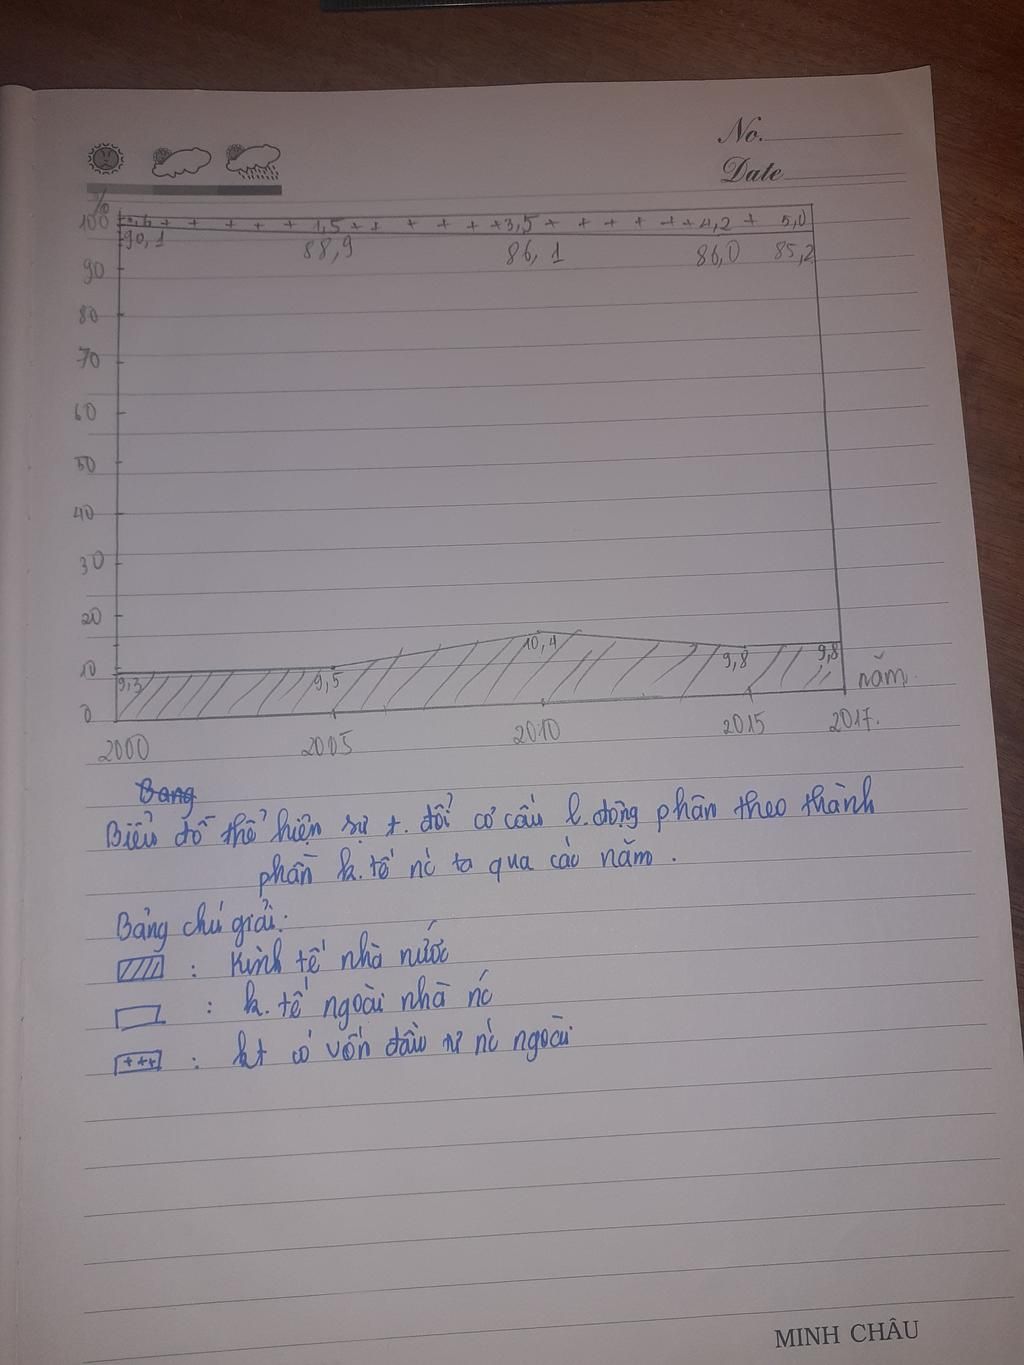 No.
Date
%
100 0,6 + + + + + 1,5 + + + + + + 3,5 + + + + + + 4,2 + 5,0
90,1 88,9 86,1 86,0 85,2
90
80
70
60
50
40
30
20
10 9,3 9,5 10,4 9,8 9,8
0 năm
2000 2005 2010 2015 2017.
Bang
Biểu đồ thể hiện sự t. đổi cơ cấu l. động phân theo thành
phần k. tế nc ta qua các năm.
Bảng chú giải:
: Kinh tế nhà nước
: k. tế ngoài nhà nc
+++ : kt có vốn đầu tư nc ngoài
MINH CHÂU